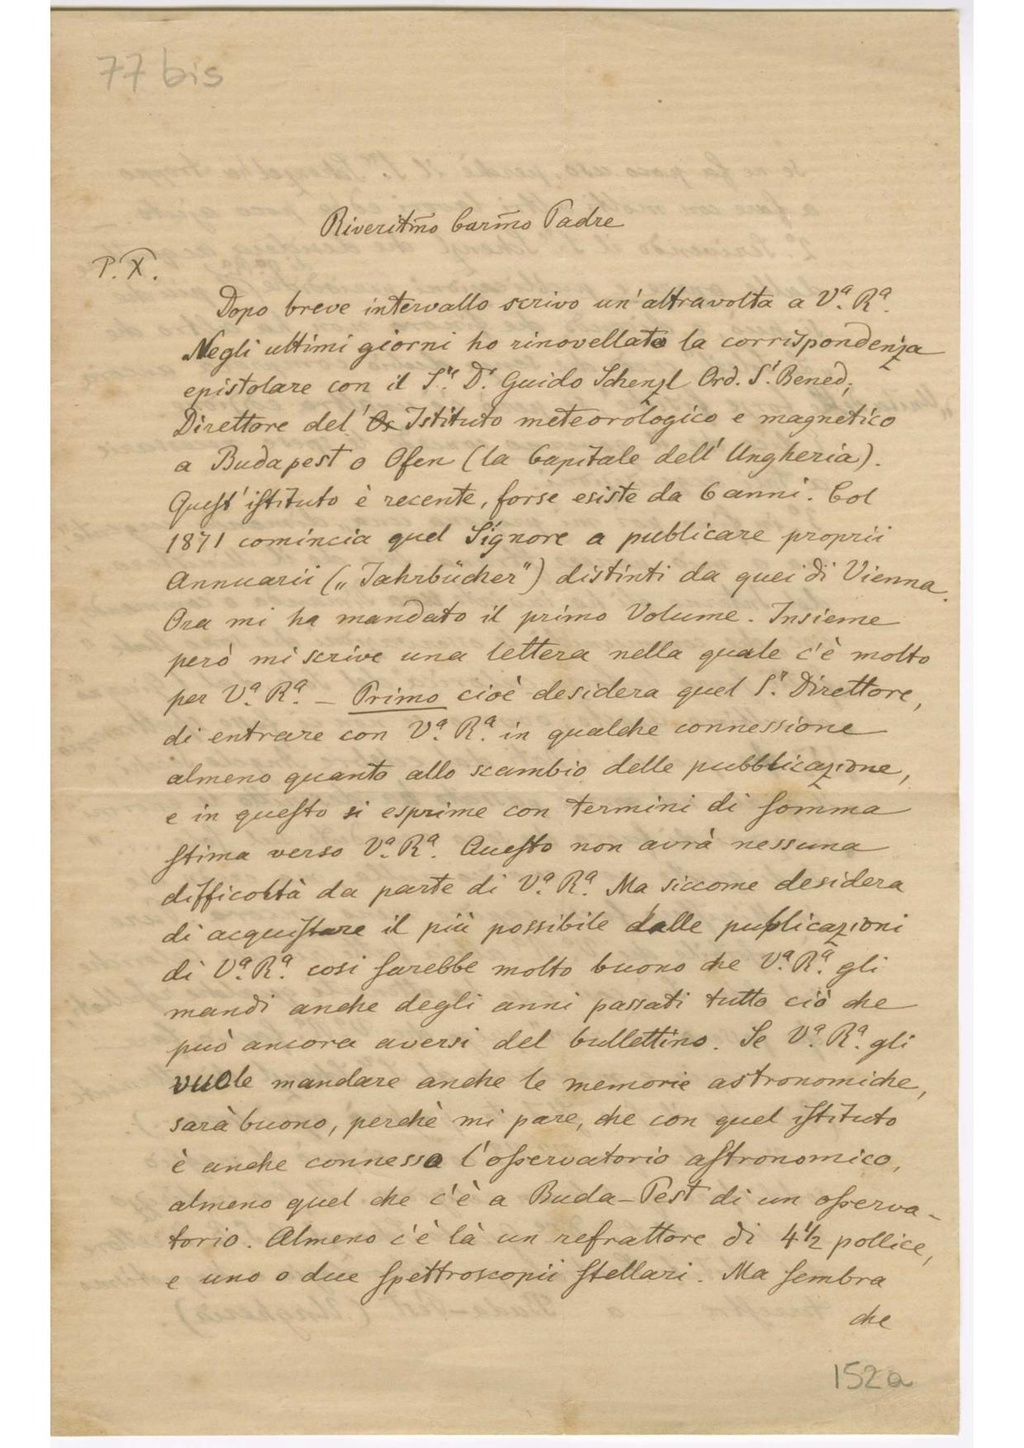 77 bis
Riveritm̃o Carm̃o Padre
P. X.
Dopo breve intervallo scrivo un'altra volta a Vª. Rª.
Negli ultimi giorni ho rinovellato la corrispondenza
epistolare con il Sr. Dr. Guido Schenzl Ord. S. Bened.,
Direttore del' Istituto meteorologico e magnetico
a Budapest o Ofen (la Capitale dell' Ungheria).
Quest' istituto è recente, forse esiste da 6 anni. Col
1871 comincia quel Signore a publicare proprii
Annuarii („Jahrbücher") distinti da quei di Vienna.
Ora mi ha mandato il primo Volume. Insieme
però mi scrive una lettera nella quale c'è molto
per Vª. Rª. – Primo cioè desidera quel Sr. Direttore,
di entrare con Vª. Rª. in qualche connessione
almeno quanto allo scambio delle pubblicazione,
e in questo si esprime con termini di somma
stima verso Vª. Rª. Questo non avrà nessuna
difficoltà da parte di Vª. Rª. Ma siccome desidera
di acquistare il più possibile dalle publicazioni
di Vª. Rª. cosi sarebbe molto buono che Vª. Rª. gli
mandi anche degli anni passati tutto ciò che
può ancora aversi del bullettino. Se Vª. Rª. gli
vuole mandare anche le memorie astronomiche,
sarà buono, perchè mi pare, che con quel istituto
è anche connesso l'osservatorio astronomico,
almeno quel che c'è a Buda-Pest di un osserva-
torio. Almeno c'è là un refrattore di 4½ pollice,
e uno o due spettroscopii stellari. Ma sembra
che
152a